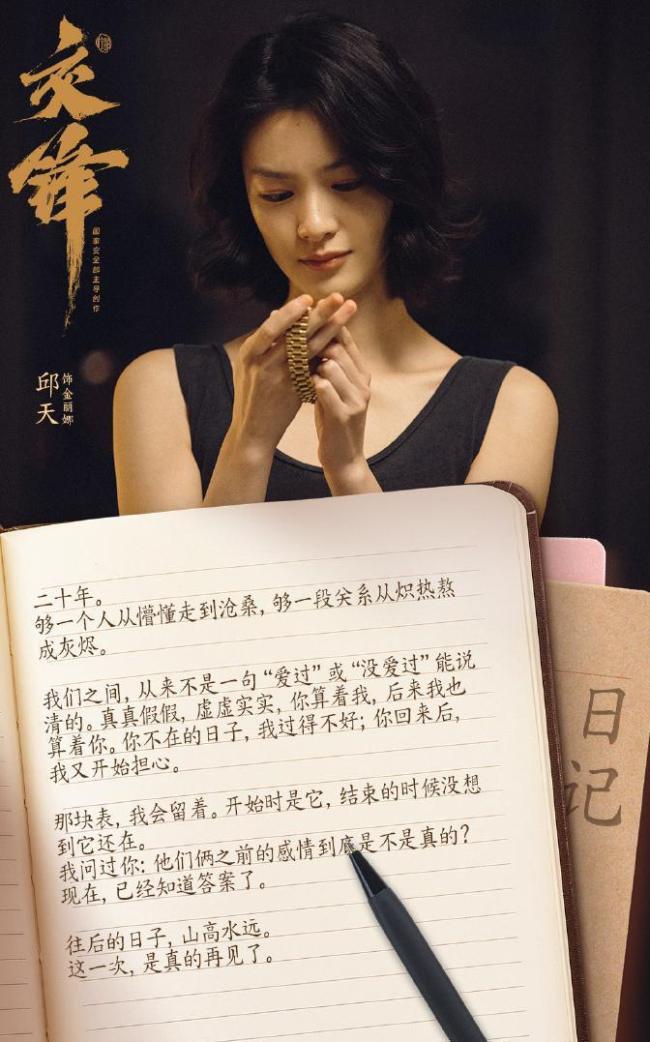 交锋
国家安全部主导创作
邱天
饰金丽娜
二十年。
够一个人从懵懂走到沧桑，够一段关系从炽热熬
成灰烬。
我们之间，从来不是一句“爱过”或“没爱过”能说
清的。真真假假，虚虚实实，你算着我，后来我也
算着你。你不在的日子，我过得不好；你回来后，
我又开始担心。
那块表，我会留着。开始时是它，结束的时候没想
到它还在。
我问过你：他们俩之前的感情到底是不是真的？
现在，已经知道答案了。
往后的日子，山高水远。
这一次，是真的再见了。
日记